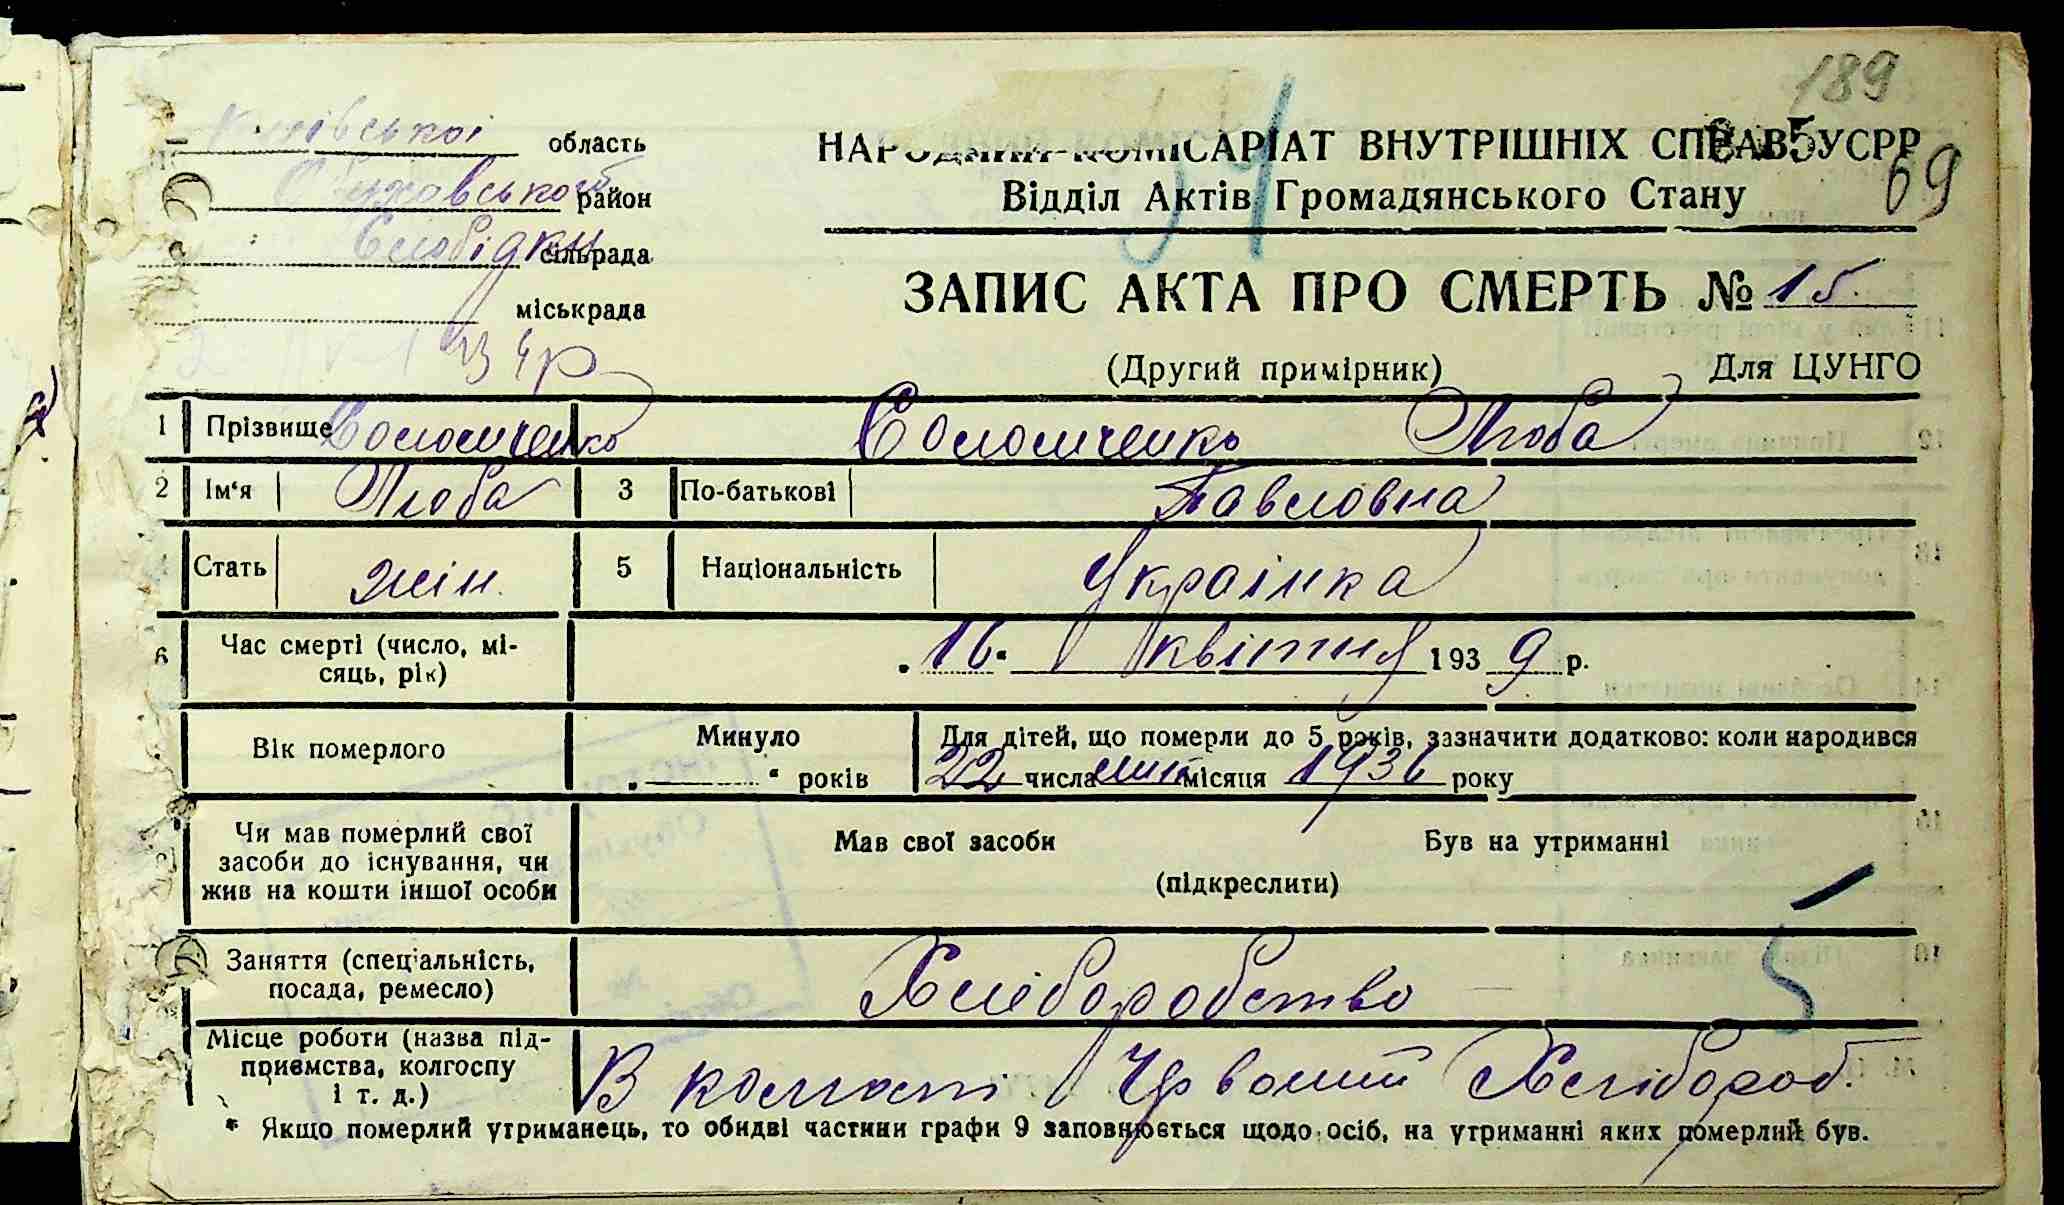 189
Київської область
НАРОДНИЙ КОМІСАРІАТ ВНУТРІШНІХ СПРАВ УСРР
район
69
Відділ Актів Громадянського Стану
Слобідка сільрада
ЗАПИС АКТА ПРО СМЕРТЬ № 15.
міськрада
(Другий примірник) Для ЦУНГО
1 Прізвище Соломченко Соломченко Люба
2 Ім'я Люба 3 По-батькові Павловна
4 Стать жін. 5 Національність Українка
6 Час смерті (число, мі-
сяць, рік)
„16“ квітня 1939 р.
Вік померлого
Минуло
„ “ років
Для дітей, що померли до 5 років, зазначити додатково: коли народився
22 числа місяця 1936 року
Чи мав померлий свої
засоби до існування, чи
жив на кошти іншої особи
Мав свої засоби Був на утриманні
(підкреслити)
Заняття (спеціальність,
посада, ремесло)
Хліборобство
Місце роботи (назва під-
приємства, колгоспу
і т. д.)
В колгоспі Червоний Хлібороб.
* Якщо померлий утриманець, то обидві частини графи 9 заповнюється щодо осіб, на утриманні яких померлий був.